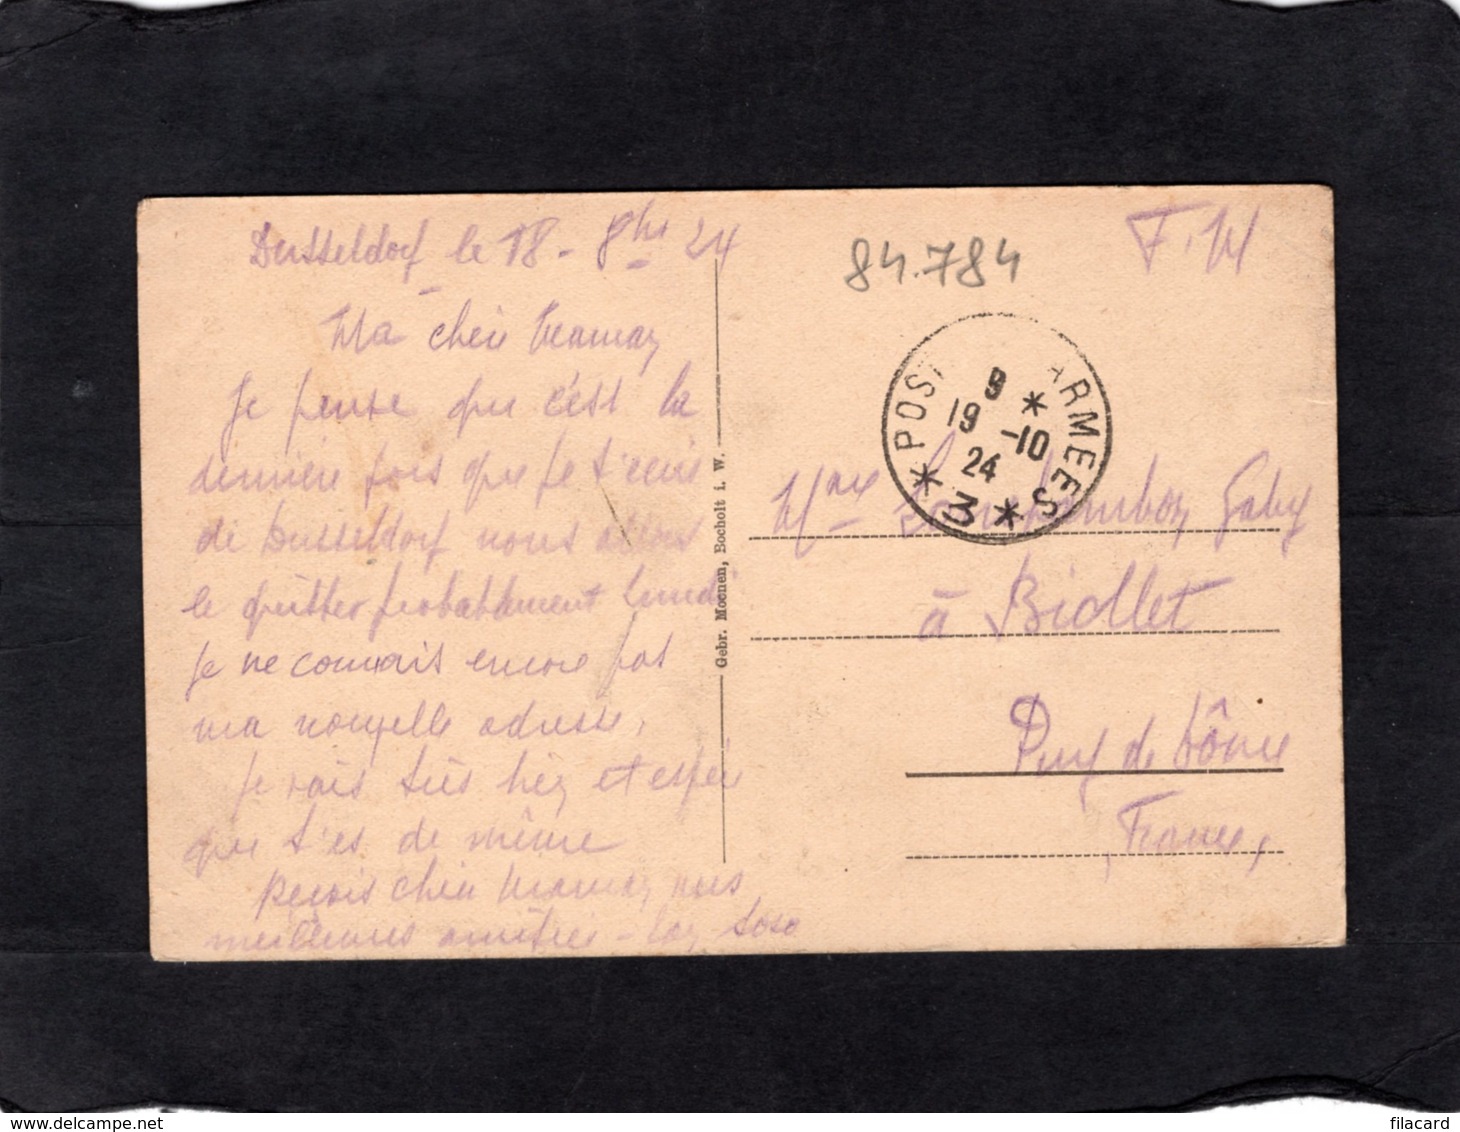 Dusseldorf le 18 - 8bre 24
Ma chère Maman,
Je pense que c'est la
dernière fois que je t'écris
de Dusseldorf nous allons
le quitter probablement lundi
je ne connais encore pas
ma nouvelle adresse,
Je vais très bien et espère
que t'es de même
Reçois chère Maman, mes
meilleures amitiés - Ton Soso
Gebr. Moenen, Bocholt i. W.
F. M
84.784
POST ARMEES
9
19 -10
24
* 3 *
Mme Gaby
à Biollet
Puy de Dôme
France,
www.delcampe.net
filacard